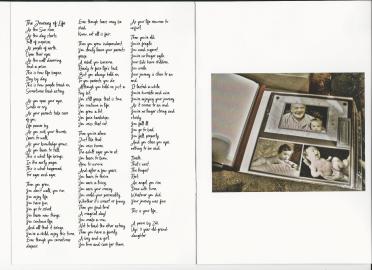 The Journey of Life
As the Sun rises
As the day starts
Full of surprise
As people of earth
Open their eyes
As the world dawning
And a prize
This is how life begins
Day by day
This is how people tread on,
Sometimes tired acting.
As you open your eyes,
Smile or cry
As your parents take care
of you,
Life passes by
As you roll, your thumb,
Learn to walk,
As your knowledge grows
As you learn to talk,
This is what life brings
In the early pages
This is what happened,
For ages and ages
Then you grow,
You don't walk, you run.
You enjoy life
You have fun,
You go to school
You learn new things
You continue life
And all that it brings
You're a child, enjoy this time,
Even though you sometimes
disobey
Even though tears may be
shed,
Know, not all is fair.
Then you grow independent,
You slowly leave your parents
grasp
A adult you become,
Ready to face life's task
But you always hold on
To you parents, you do
Although you hold on just a
tiny bit,
You still grasp that is true.
You continue on life
You grow a bit
You face hardships
You miss that out.
Then you're alone
Just like that
You miss home,
The adult age you're at
You learn to learn,
How to survive
And after a few years
You learn to thrive
You earn a living
You earn your money
You build your personality
Whether it's sweet or funny
Then you find love!
A magical day!
You make a vow,
Not to lead the other astray
Then you have a family
A boy and a girl
You love and care for them,
As your life reverses to
repeat.
Then you're old
You're fragile
You need support
You're no longer agile
Your kids have children,
You smile
Your journey is close to an
end,
It lasted a while
You're humble and wise
You're enjoying your journey
As it comes to an end,
You're no longer strong and
sturdy
You fall ill
You go to bed,
You fall properly
And you close your eyes,
nothing to be said.
Death,
That's next,
The longest
Rest
An angel you rise
Done with time,
Whatever you did
Your journey was fine
This is your life.
A poem by Jill
Ugi: 11 year old grand-
daughter